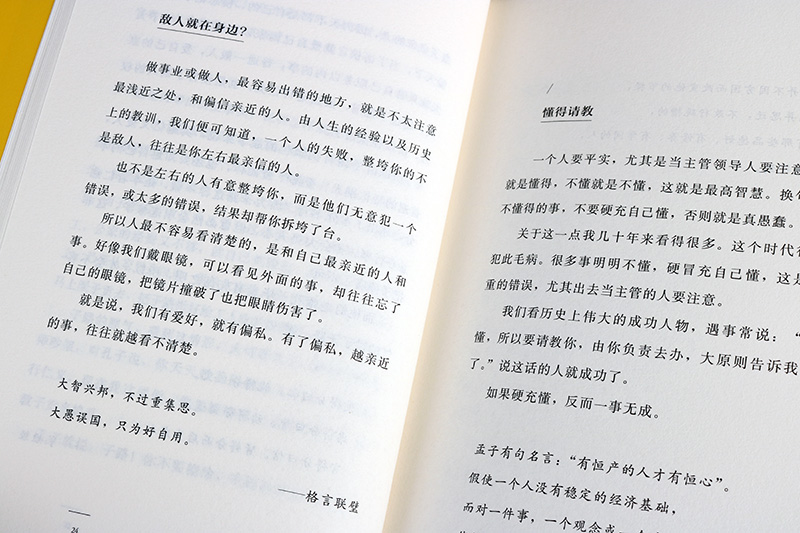 敌人就在身边?
做事业或做人，最容易出错的地方，就是不太注意
最浅近之处，和偏信亲近的人。由人生的经验以及历史
上的教训，我们便可知道，一个人的失败，整垮你的不
是敌人，往往是你左右最亲信的人。
也不是左右的人有意整垮你，而是他们无意犯一个
错误，或太多的错误，结果却帮你拆垮了台。
所以人最不容易看清楚的，是和自己最亲近的人和
事。好像我们戴眼镜，可以看见外面的事，却往往忘了
自己的眼镜，把镜片撞破了也把眼睛伤害了。
就是说，我们有爱好，就有偏私。有了偏私，越亲近
的事，往往就越看不清楚。
大智兴邦，不过重集思。
大愚误国，只为好自用。
——格言联璧
24
懂得请教
一个人要平实，尤其是当主管领导人要注意
就是懂得，不懂就是不懂，这就是最高智慧。换
不懂得的事，不要硬充自己懂，否则就是真愚蠢。
关于这一点我几十年来看得很多。这个时代
犯此毛病。很多事明明不懂，硬冒充自己懂，这是
重的错误，尤其出去当主管的人要注意。
我们看历史上伟大的成功人物，遇事常说：“
懂，所以要请教你，由你负责去办，大原则告诉我
了。”说这话的人就成功了。
如果硬充懂，反而一事无成。
孟子有句名言：“有恒产的人才有恒心”。
假使一个人没有稳定的经济基础，
而对一件事，一个观念或